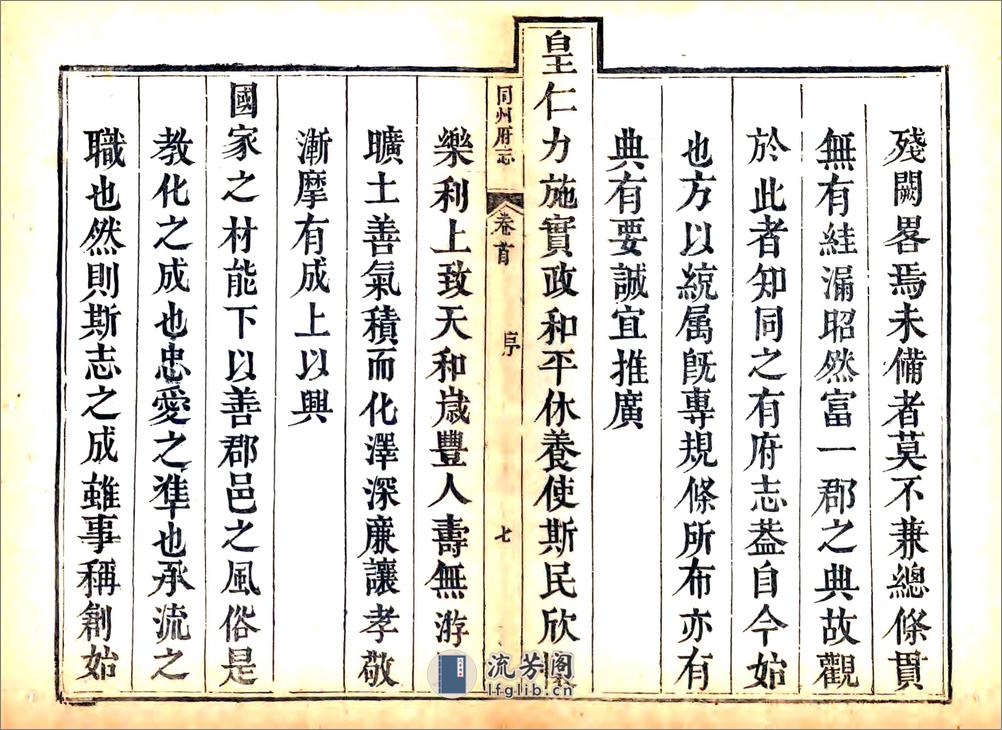 殘闕畧焉未備者莫不兼總條貫
無有絓漏昭然富一郡之典故觀
於此者知同之有府志葢自今始
也方以統属旣專規條所布亦有
典有要誠宜推廣
皇仁力施實政和平休養使斯民欣
同州府志 卷首 序 七
樂利上致天和歲豐人壽無游
曠土善氣積而化澤深廉讓孝敬
漸摩有成上以興
國家之材能下以善郡邑之風俗是
教化之成也忠愛之準也承流之
職也然則斯志之成雖事稱創始
流芳阁
lfglib.cn